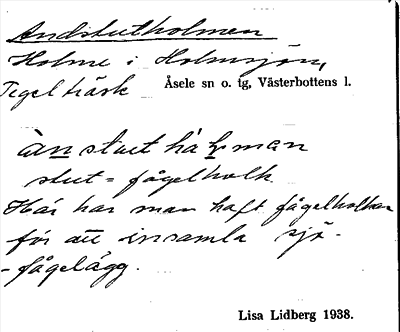 Andstutholmen
Holme i Holmsjön,
Tegelträsk Åsele sn o. tg, Västerbottens l.
àn stut hå l man
stut = fågelholk
Här har man haft fågelholkar
för att insamla sjö-
-fågelägg.
Lisa Lidberg 1938.